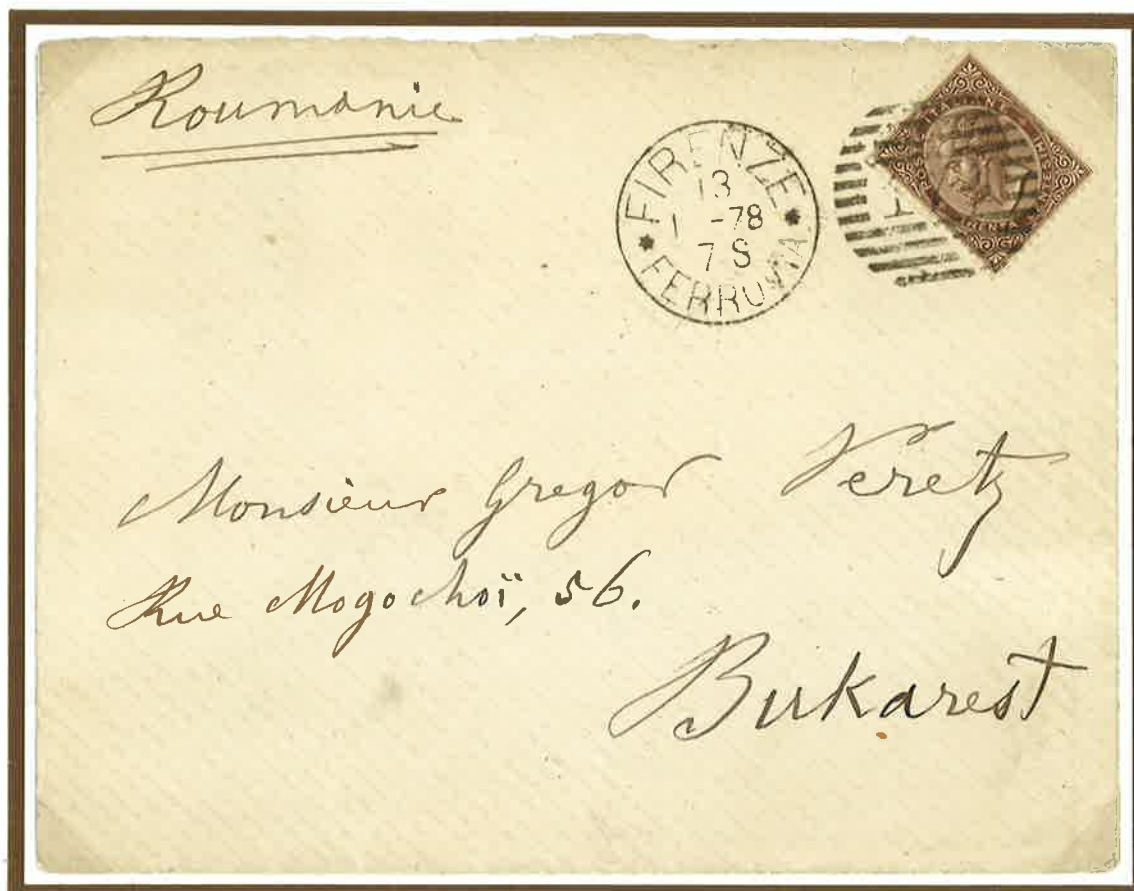 Roumanie
FIRENZE
13
1 -78
7 S
FERROVIA
Monsieur Gregor Peretz
Rue Mogochoï, 56.
Bukarest